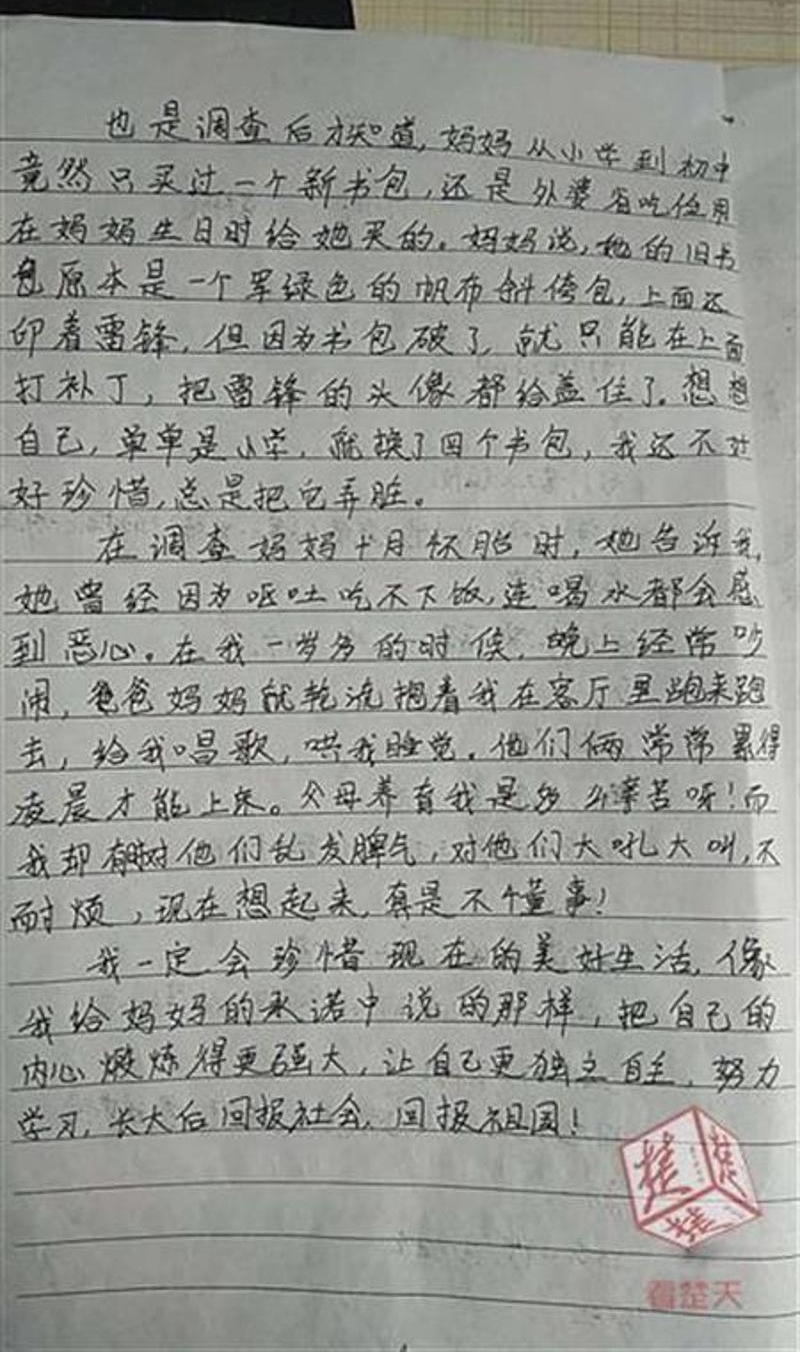 也是调查后才知道,妈妈从小学到初中
竟然只买过一个新书包,还是外婆省吃俭用
在妈妈生日时给她买的。妈妈说,她的旧书
包原本是一个军绿色的帆布斜侉包,上面还
印着雷锋,但因为书包破了,就只能在上面
打补丁,把雷锋的头像都给盖住了。想想
自己,单单是小学,就换了四个书包,我还不好
好珍惜,总是把它弄脏。
在调查妈妈十月怀胎时,她告诉我,
她曾经因为呕吐吃不下饭,连喝水都会感
到恶心。在我一岁多的时候,晚上经常吵
闹,爸爸妈妈就轮流抱着我在客厅里跑来跑
去,给我唱歌,哄我睡觉。他们俩常常累得
凌晨才能上床。父母养育我是多么辛苦呀!而
我却有时对他们乱发脾气,对他们大吼大叫,不
耐烦,现在想起来,真是不懂事!
我一定会珍惜现在的美好生活,像
我给妈妈的承诺中说的那样,把自己的
内心煅炼得更强大,让自己更独立自主,努力
学习,长大后回报社会,回报祖国!
楚
看楚天